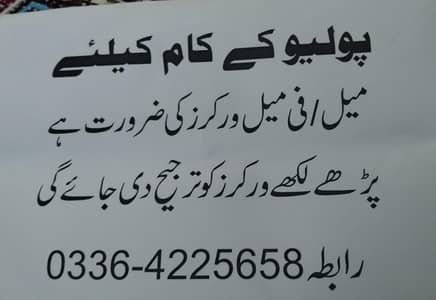 پولیو کے کام کیلئے
میل/فی میل ورکرز کی ضرورت ہے
پڑھے لکھے ورکرز کو ترجیح دی جائے گی
رابطہ 0336-4225658